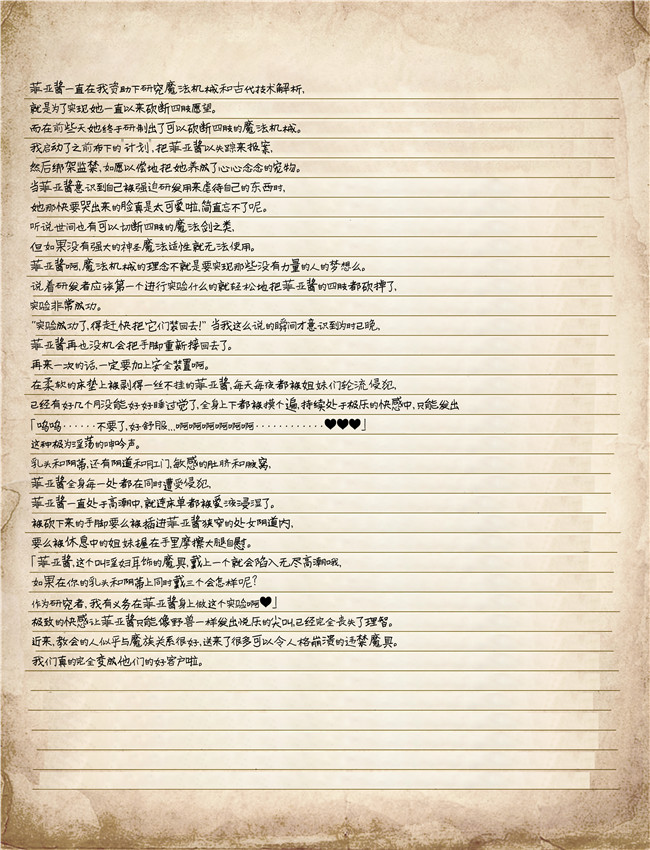 菲亚酱一直在我资助下研究魔法机械和古代技术解析,
就是为了实现她一直以来砍断四肢愿望。
而在前些天她终于研制出了可以砍断四肢的魔法机械。
我启动了之前布下的"计划",把菲亚酱以失踪来报案,
然后绑架监禁,如愿以偿地把她养成了心心念念的宠物。
当菲亚酱意识到自己被强迫研发用来虐待自己的东西时,
她那快要哭出来的脸真是太可爱啦,简直忘不了呢。
听说世间也有可以切断四肢的魔法剑之类,
但如果没有强大的神圣魔法适性就无法使用。
菲亚酱啊,魔法机械的理念不就是要实现那些没有力量的人的梦想么。
说着研发者应该第一个进行实验什么的就轻松地把菲亚酱的四肢都砍掉了,
实验非常成功。
"实验成功了,得赶快把它们装回去!"当我这么说的瞬间才意识到为时已晚,
菲亚酱再也没机会把手脚重新接回去了。
再来一次的话,一定要加上安全装置啊。
在柔软的床垫上被剥得一丝不挂的菲亚酱,每天每夜都被姐妹们轮流侵犯,
已经有好几个月没能好好睡过觉了,全身上下都被摸个遍,持续处于极乐的快感中,只能发出
「呜呜······不要了,好舒服...啊啊啊啊啊啊啊············♥♥♥」
这种极为淫荡的呻吟声。
乳头和阴蒂,还有阴道和肛门,敏感的肚脐和腋窝,
菲亚酱全身每一处都在同时遭受侵犯,
菲亚酱一直处于高潮中,就连床单都被爱液浸湿了。
被砍下来的手脚要么被插进菲亚酱狭窄的处女阴道内,
要么被休息中的姐妹握在手里摩擦大腿自慰。
「菲亚酱,这个叫淫妇耳饰的魔具,戴上一个就会陷入无尽高潮哦,
如果在你的乳头和阴蒂上同时戴三个会怎样呢?
作为研究者,我有义务在菲亚酱身上做这个实验啊♥」
极致的快感让菲亚酱只能像野兽一样发出悦乐的尖叫,已经完全丧失了理智。
近来,教会的人似乎与魔族关系很好,送来了很多可以令人格崩溃的违禁魔具。
我们真的完全变成他们的好客户啦。